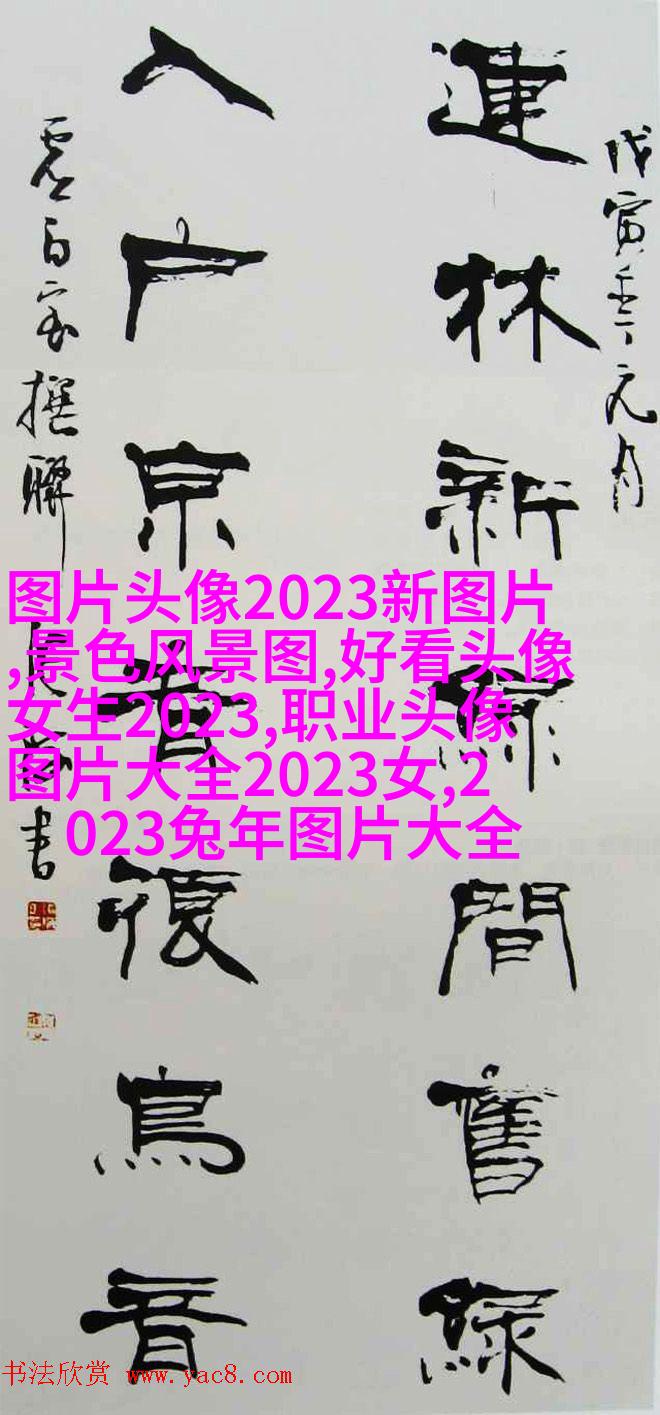 戊寅年元月
連林新綠間舊綠
入户京音鳥音
白撰聯書
图片头像2023新图片
,景色风景图,好看头像
女生2023,职业头像
图片大全2023女,2
023兔年图片大全
书法欣赏 www.yac8.com